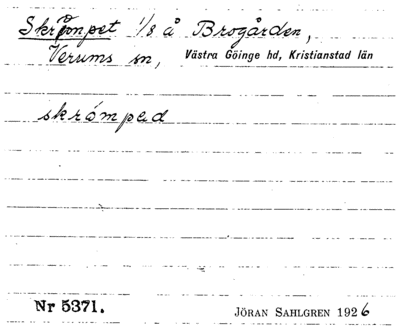 Skrömpet 1/8 å Brogården,
Verums sn, Västra Göinge hd, Kristianstad län
skrömped
Nr 5371. JÖRAN SAHLGREN 1926